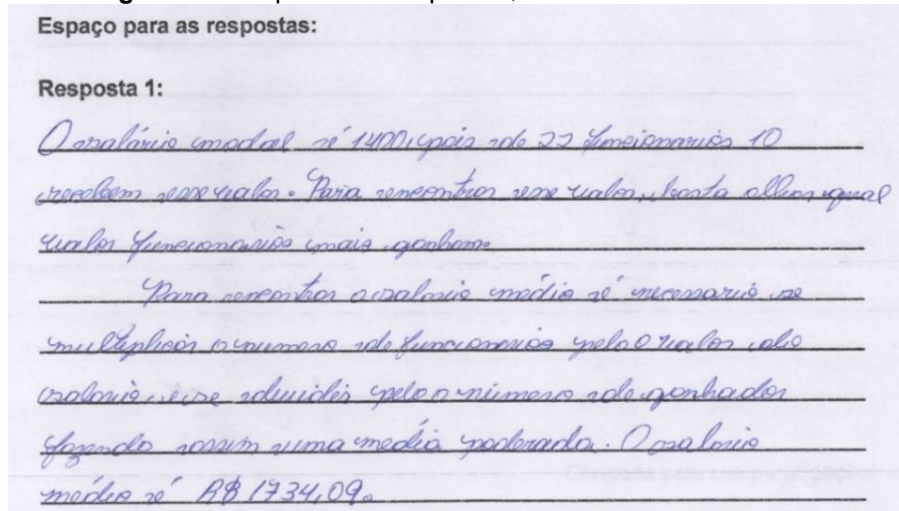 Espaço para as respostas:
Resposta 1:
O salário modal é 1400, pois de 22 funcionarios 10
recebem esse valor. Para encontrar esse valor, basta olhar qual
valor funcionarios mais ganham.
Para encontrar o salario médio é necessario se
multiplicar o numero de funcionarios pelo o valor do
salario, e se dividir pelo o número de ganhador
fazendo assim uma media poderada. O salario
médio é R$ 1734,09.